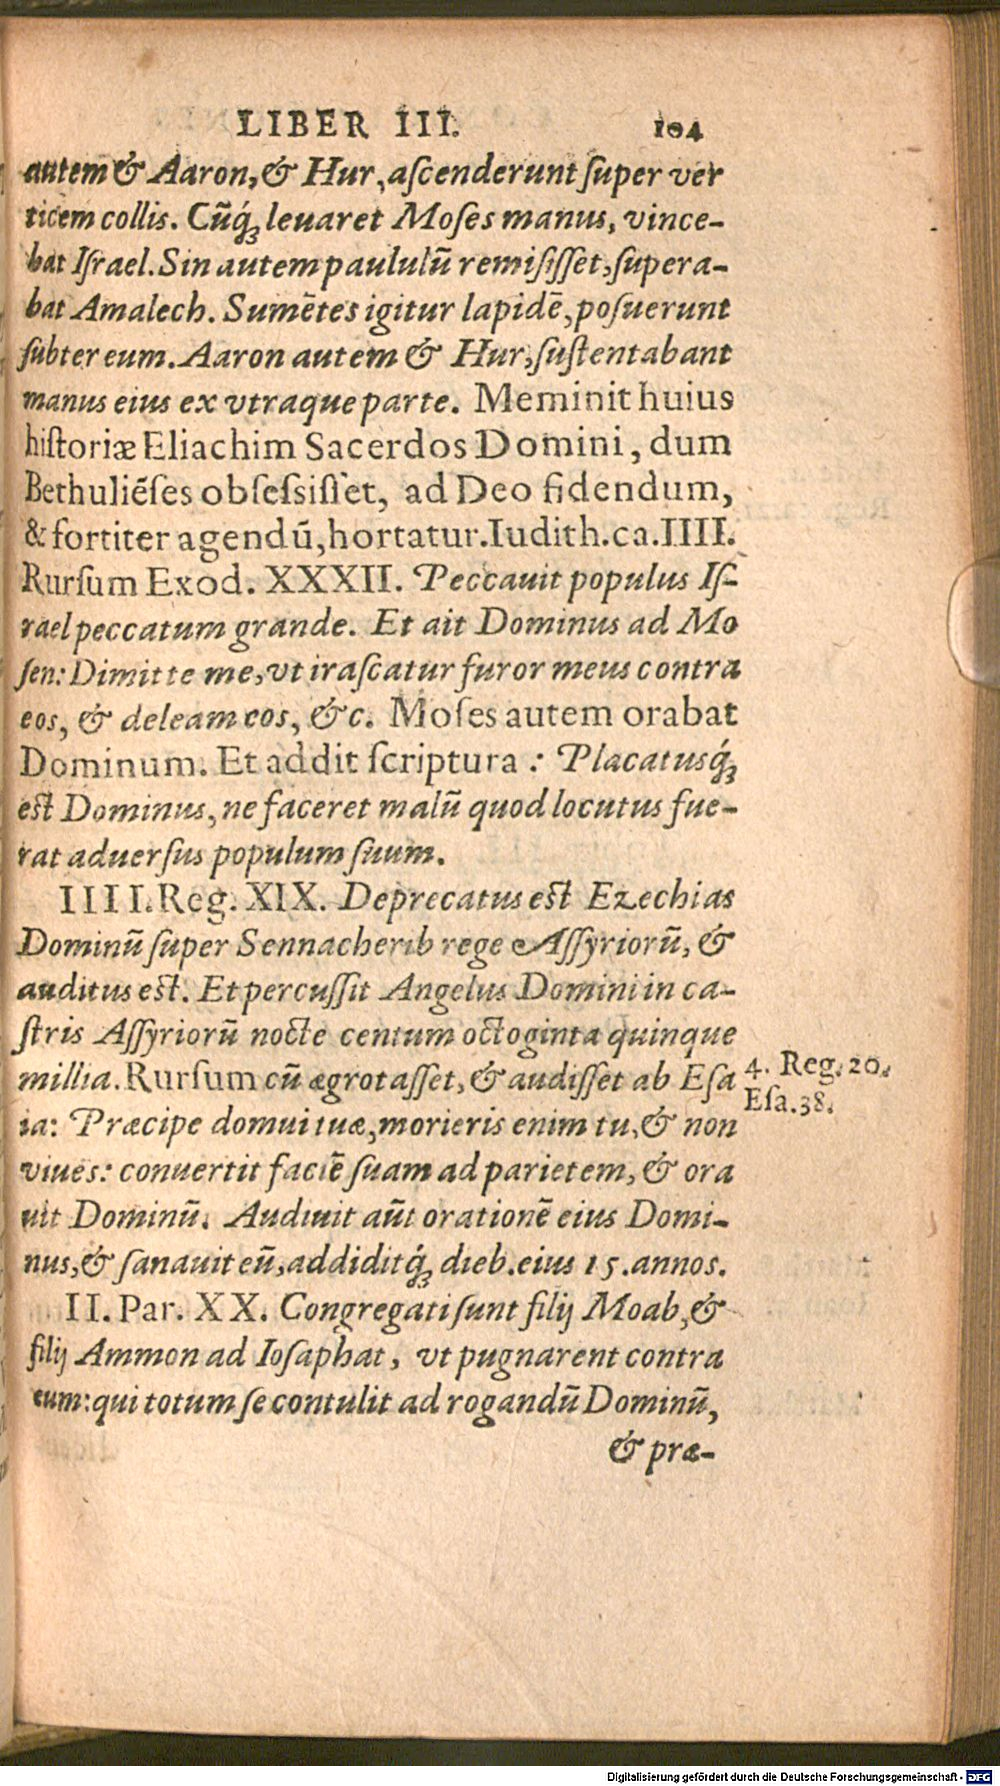 LIBER III. 104
autem & Aaron, & Hur, aſcenderunt ſuper ver
ticem collis. Cũq́; leuaret Moſes manus, vince-
bat Iſrael. Sin autem paululũ remiſiſſet, ſupera-
bat Amalech. Sumẽtes igitur lapidẽ, poſuerunt
ſubter eum. Aaron autem & Hur, ſuſtentabant
manus eius ex vtraque parte. Meminit huius
hiſtoriæ Eliachim Sacerdos Domini, dum
Bethuliẽſes obſeſsiſſet, ad Deo fidendum,
& fortiter agendũ, hortatur. Iudith. ca. IIII.
Rurſum Exod. XXXII. Peccauit populus Iſ-
rael peccatum grande. Et ait Dominus ad Mo
ſen: Dimitte me, vt iraſcatur furor meus contra
eos, & deleam eos, &c. Moſes autem orabat
Dominum. Et addit ſcriptura: Placatusq́;
eſt Dominus, ne faceret malũ quod locutus fue-
rat aduerſus populum ſuum.
IIII. Reg. XIX. Deprecatus eſt Ezechias
Dominũ ſuper Sennacherib rege Aſſyriorũ, &
auditus eſt. Et percuſſit Angelus Domini in ca-
ſtris Aſſyriorũ nocte centum octoginta quinque
millia. Rurſum cũ ægrotaſſet, & audiſſet ab Eſa
ia: Præcipe domui tuæ, morieris enim tu, & non
viues: conuertit faciẽ ſuam ad parietem, & ora
uit Dominũ. Audiuit aũt orationẽ eius Domi-
nus, & ſanauit eũ, addiditq́; dieb. eius 15. annos.
4. Reg. 20.
Eſa. 38.
II. Par. XX. Congregati ſunt filij Moab, &
filij Ammon ad Ioſaphat, vt pugnarent contra
eum: qui totum ſe contulit ad rogandũ Dominũ,
& præ-
Digitalisierung gefördert durch die Deutsche Forschungsgemeinschaft - DFG